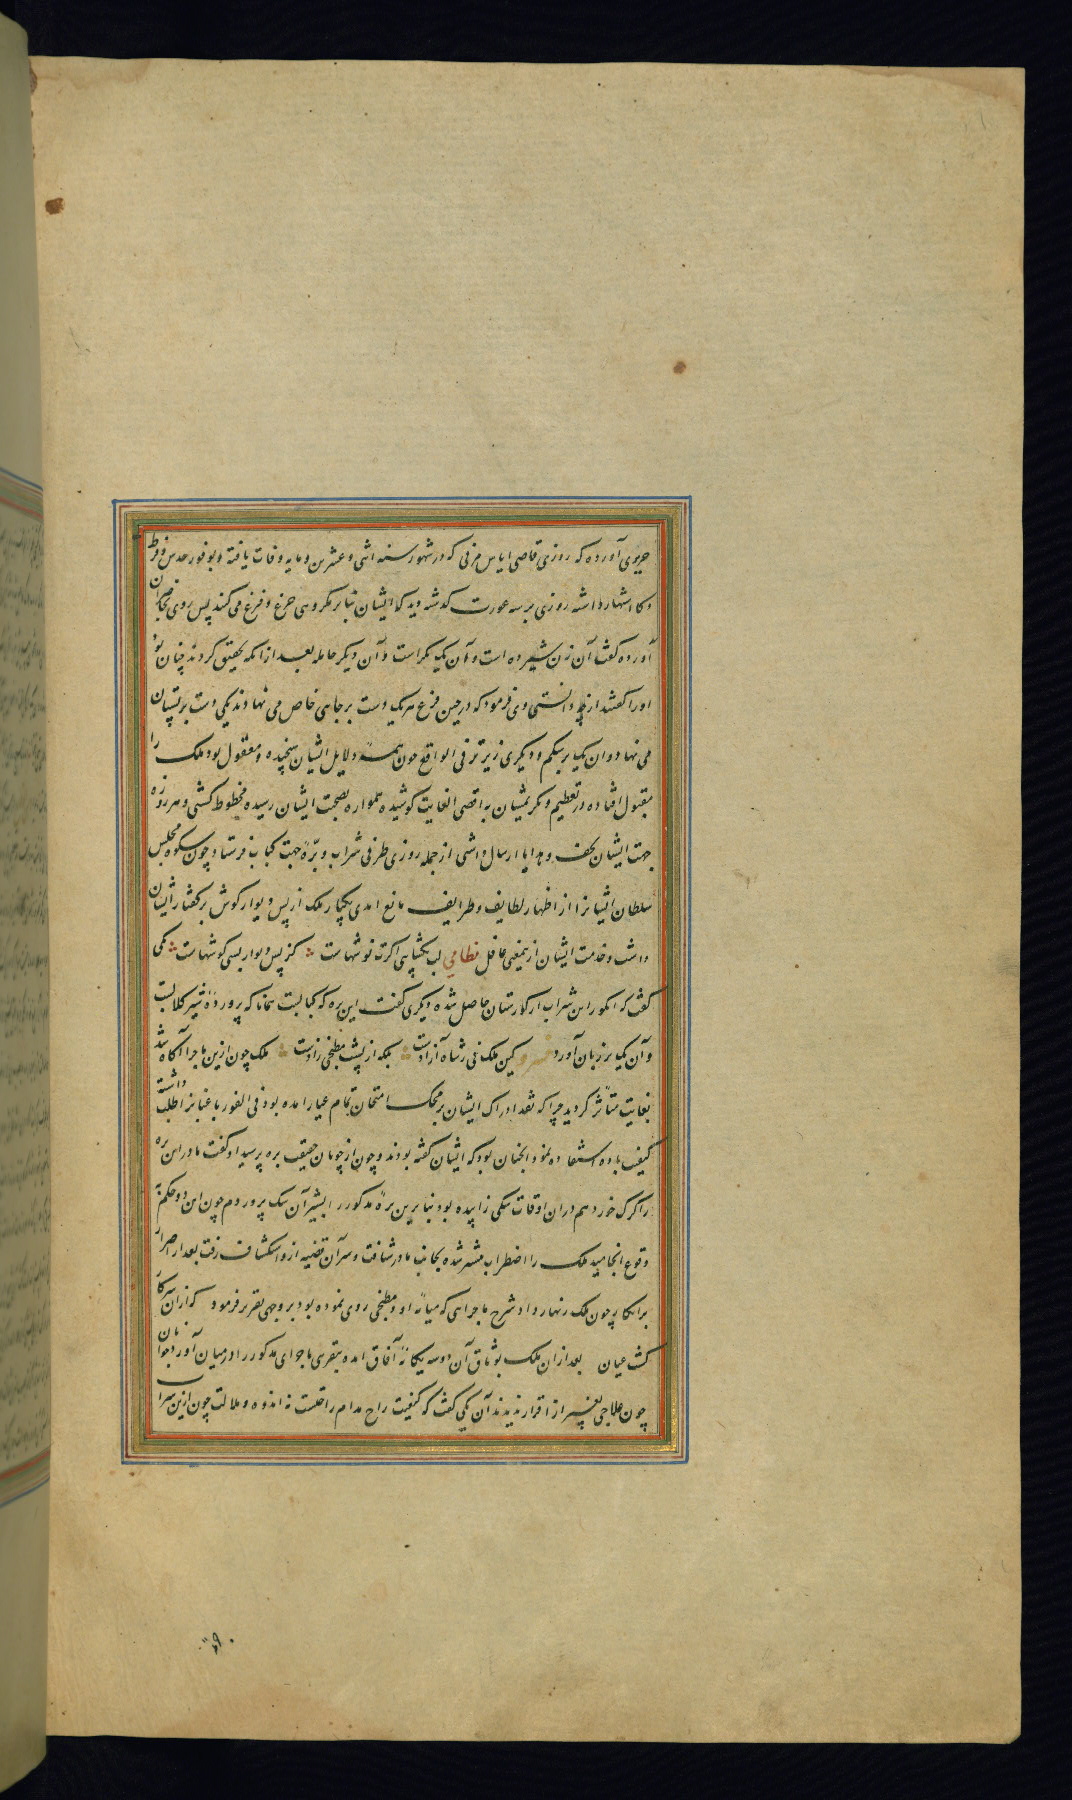 حریری آورده که روزی قاضی ایاس مزنی که در شهور سنه اثنی و عشرین و مایه وفات یافته و بوفور حدس و فرط
ذکا اشتهار داشته روزی بر سه عورت گذشته دید که ایشان بنابر مکروهی جزع و فزع می کنند پس روی بحاضران
آورده گفت آن زن شیرده است و آن یک بکر است و آن دیگر حامله بعد از آنکه تحقیق کردند چنان بود
او را گفتند از چه دانستی وی فرمود که در حین فزع هر یک دست بر جایی خاص می نهادند یکی دست بر پستان
می نهاد و آن یک بر شکم و دیگری زیرتر فی الواقع چون همه دلایل ایشان سنجیده و معقول بود ملک را
مقبول افتاده در تعظیم و تکریمشان به اقصی الغایت کوشیده همواره بصحبت ایشان رسیده محظوظ گشتی و هر روزه
جهت ایشان تحف و هدایا ارسال داشتی از جمله روزی ظرفی شراب و بره جهت کباب فرستاد چون شکوه مجلس
سلطان ایشانرا از اظهار لطایف و ظرایف مانع امدی یکبار ملک از پس دیوار گوش بر گفتار ایشان
داشت و خدمت ایشان از ینمعنی غافل نظامی لب مگشای اگرت نوشهاست کز پس دیوار بسی گوشهاست یکی
گفت که انگور این شراب از گورستان حاصل شده دیگری گفت این بره که کبابست همانا که پرورده شیر کلابست
و آن یک بر زبان آورد خسرو کین ملک نی ز شاه آزادست بلکه از پشت مطبخی زادست ملک چون ازین ماجرا آگاه شد
بغایت متأثر گردید چرا که نقد ادراک ایشان بر محک امتحان تمام عیار امده بود فی الفور باغبانرا طلب داشته
کیفیت باده استفاده نمود انچنان بود که ایشان گفته بودند و چون از چوپان حقیقت بره پرسید او گفت مادر این بره
را گرگ خورد هم در آن اوقات سگی زاییده بود بنابرین بره مذکور را بشیر آن سگ پروردم چون این دو حکم به
وقوع انجامید ملک را اضطراب منتشر شده بجانب مادر شتافت و سر آن قضیه ازو استکشاف رفت بعد از اصرار
بر انکار چون ملک زنهار داد شرح ماجرایی که میانه او و مطبخی روی نموده بود بر وجهی تقریر فرمود که از ان سر کار
گشت عیان بعد از ان ملک بوثاق آن دو سه یگانه آفاق امده بتقریبی ماجرای مذکور را در میان آورد جوانان
چون علاجی بغیر از اقرار ندیدند آن یکی گفت که کیفیت راح مدام راحتست نه اندوه و ملالت چون ازین شراب